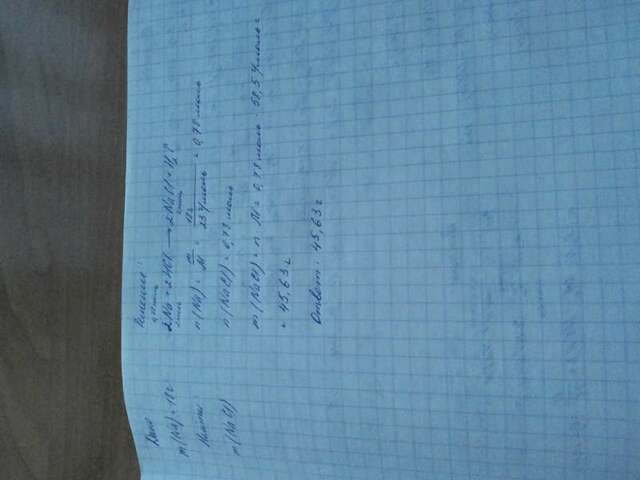 Дано
m(Na) = 18г
Найти:
m(NaCl)
Решение:
0,78моль
2Na + 2HCl → 2NaCl + H₂↑
2моль 2моль
n(Na) = m/M = 18г/23г/моль = 0,78 моль
n(NaCl) = 0,78 моль
m(NaCl) = n · M = 0,78 моль · 58,5 г/моль =
= 45,63 г
Ответ: 45,63 г